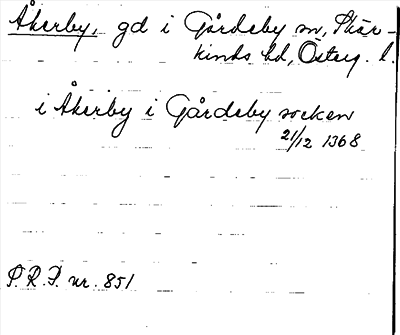 Åkerby, gd i Gårdeby sn, Skär-
kinds hd, Österg. l.
i Åkerby i Gårdeby socken
21/12 1368
S.R.P. nr. 851